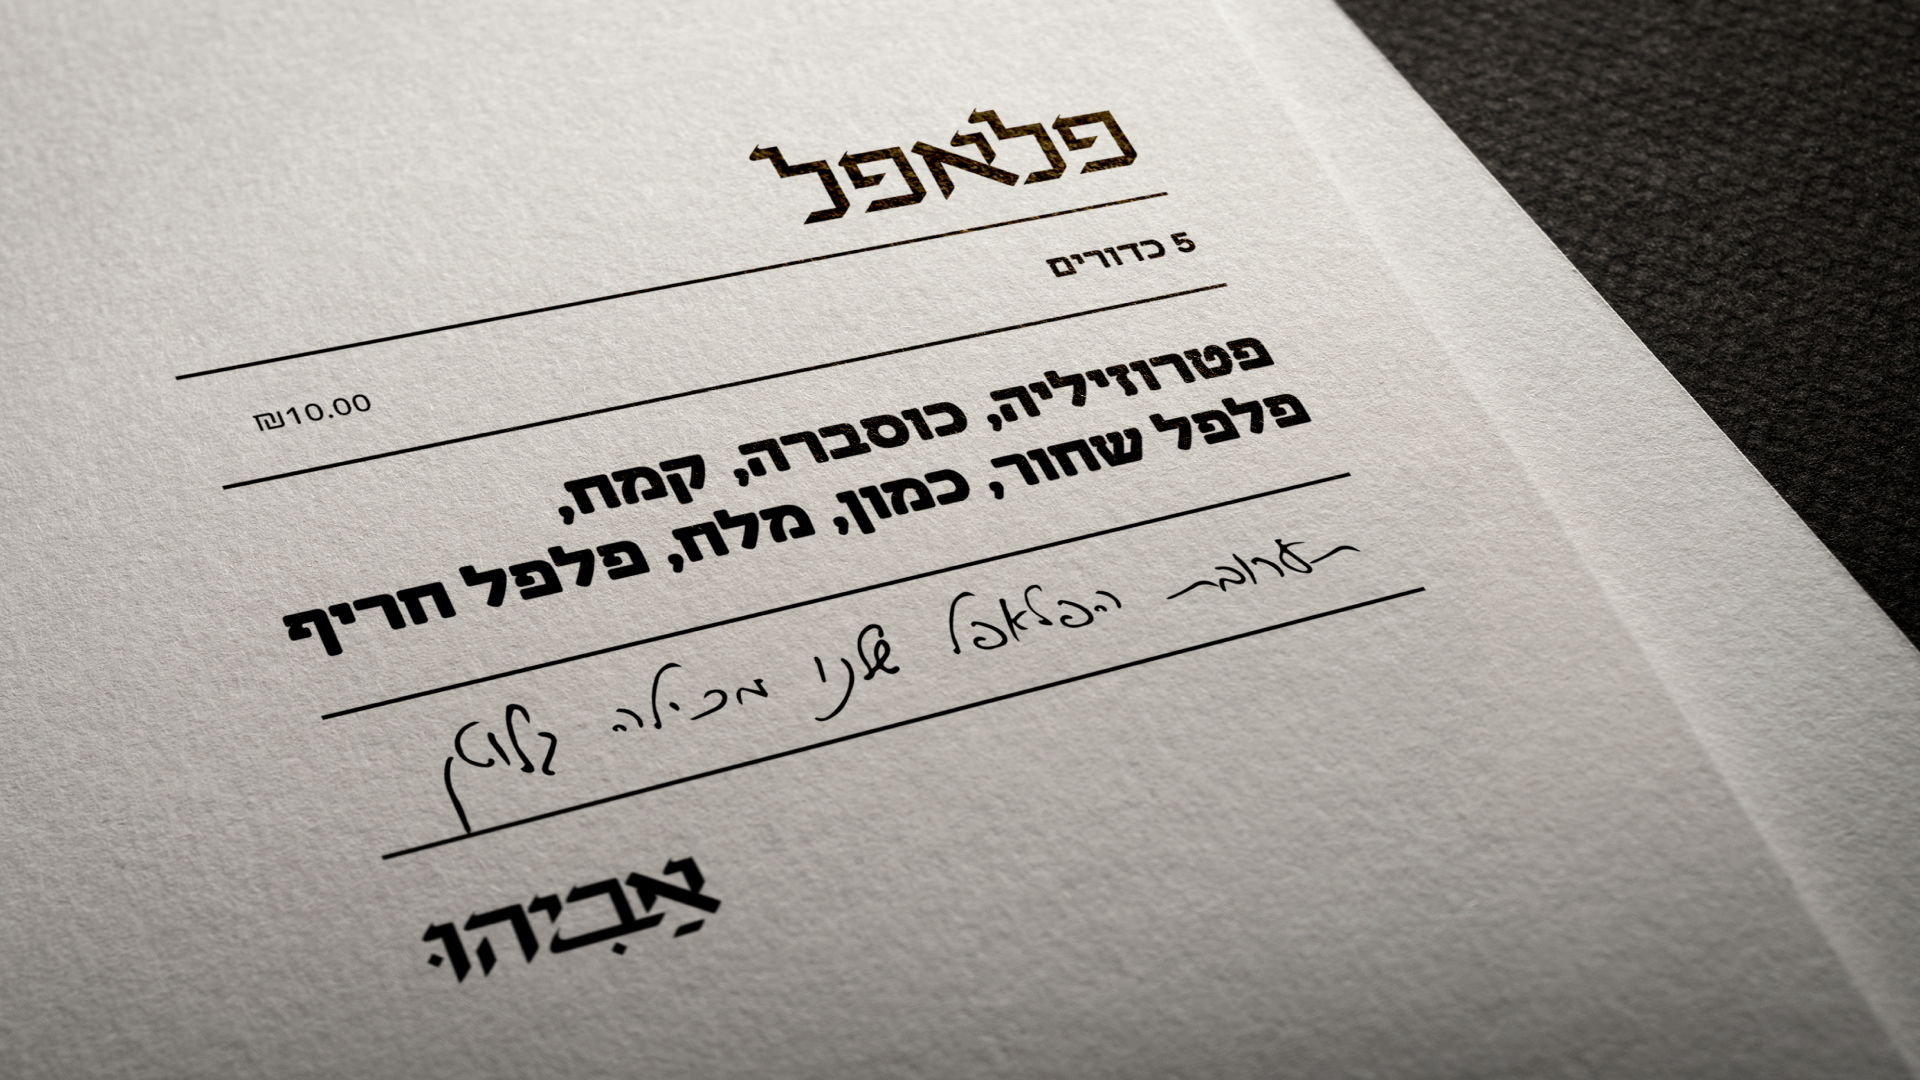 פלאפל
5 כדורים
₪10.00
פטרוזיליה, כוסברה, קמח,
פלפל שחור, כמון, מלח, פלפל חריף
תערובת הפלאפל שלנו מכילה גלוטן
אַבִּיהוּ